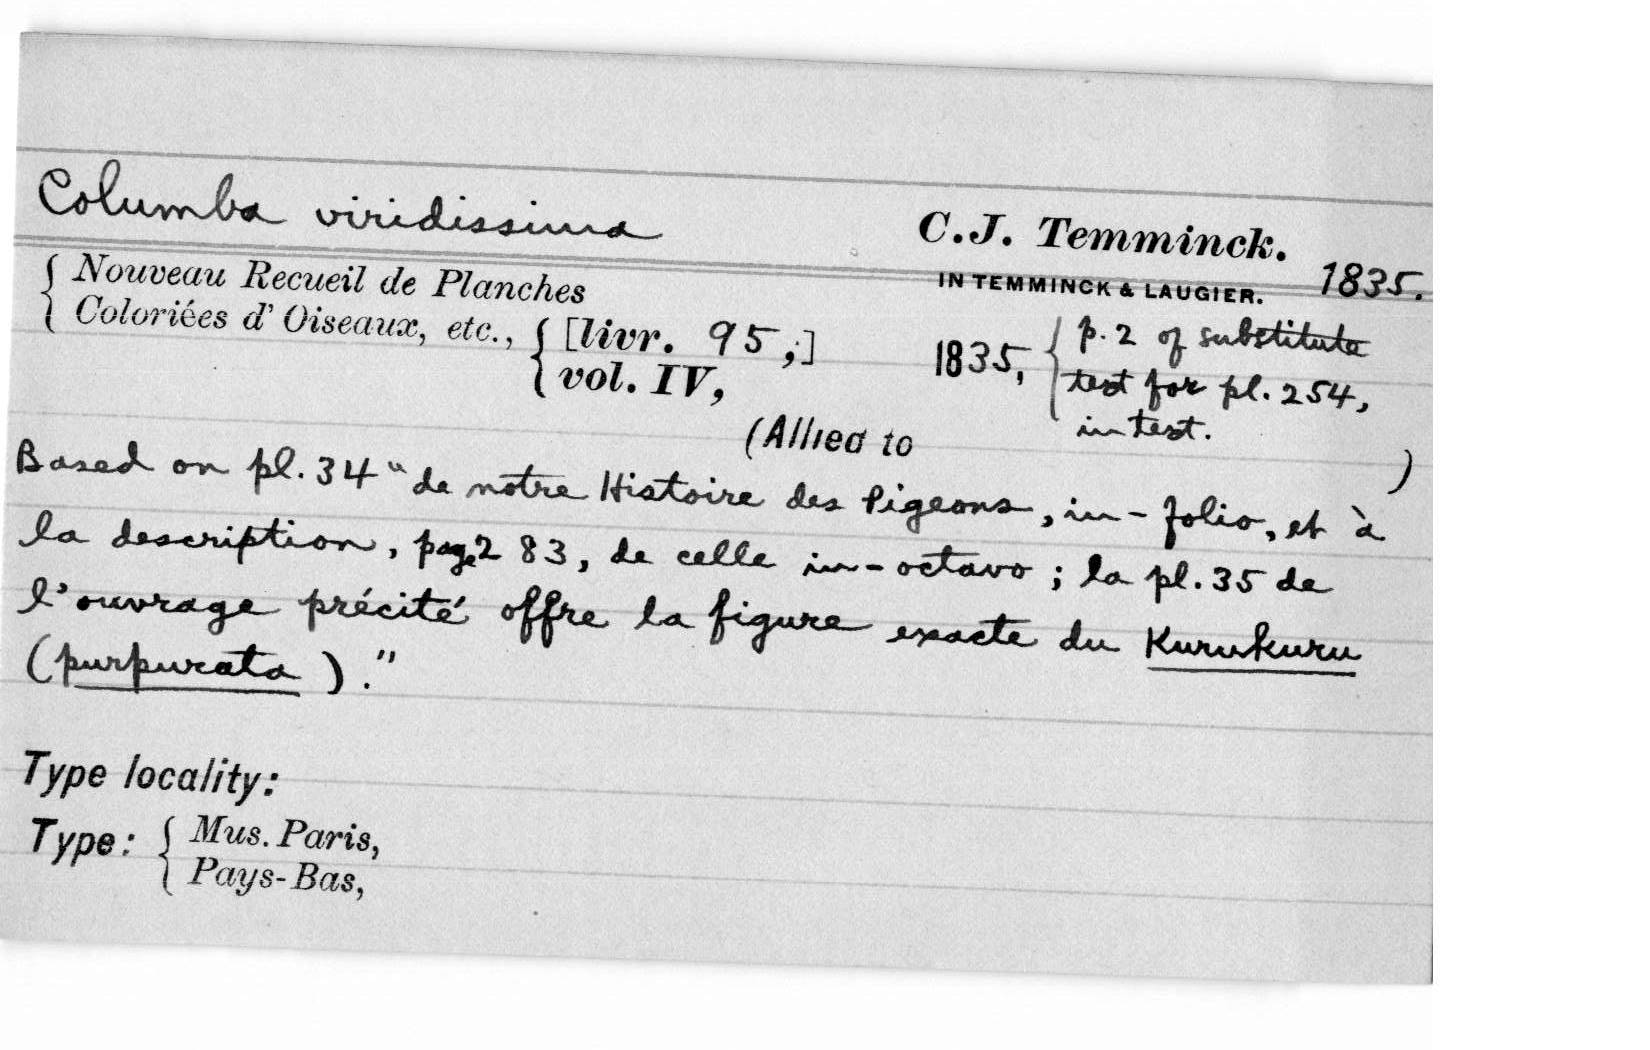 Columba viridissima C.J. Temminck.
IN TEMMINCK & LAUGIER. 1835.
{ Nouveau Recueil de Planches
Coloriées d' Oiseaux, etc., { [livr. 95,;] 1835, { p. 2 of substitute
vol. IV, text for pl. 254,
in text.
(Allied to )
Based on pl. 34 "de notre Histoire des Pigeons, in-folio, et à
la description, page 283, de celle in-octavo; la pl. 35 de
l'ouvrage précité offre la figure exacte du Kurukuru
(purpurata)."
Type locality:
Type: { Mus. Paris,
Pays-Bas,